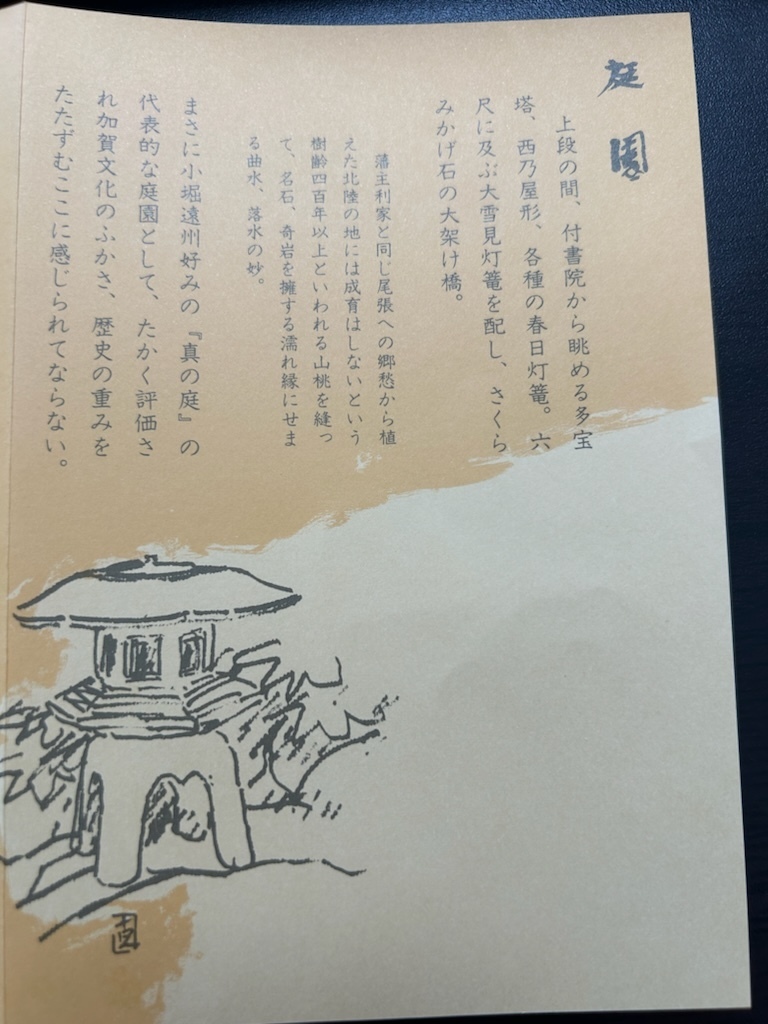 庭園
上段の間、付書院から眺める多宝
塔、西乃屋形、各種の春日灯篭。六
尺に及ぶ大雪見灯篭を配し、さくら
みかげ石の大架け橋。
藩主利家と同じ尾張への郷愁から植
えた北陸の地には成育はしないという
樹齢四百年以上といわれる山桃を縫っ
て、名石、奇岩を擁する濡れ縁にせま
る曲水、落水の妙。
まさに小堀遠州好みの『真の庭』の
代表的な庭園として、たかく評価さ
れ加賀文化のふかさ、歴史の重みを
たたずむここに感じられてならない。